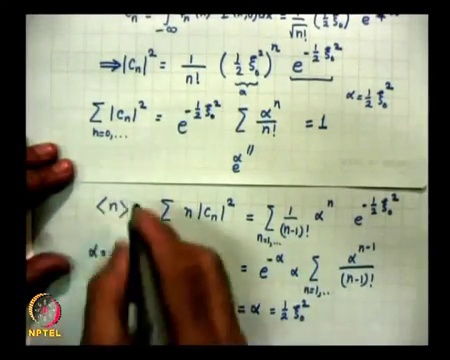 ⟹|Cₙ|² = 1/n! (½ ξ₀²)ⁿ e^(-½ξ₀²)
α
α = ½ ξ₀²
Σ_(n=0,...) |Cₙ|² = e^(-½ξ₀²) Σ αⁿ/n! = 1
e^α
<n> Σ n |Cₙ|² = Σ_(n=1,...) 1/(n-1)! αⁿ e^(-½ξ₀²)
α =
= e^(-α) α Σ_(n=1,...) α^(n-1)/(n-1)!
= α = ½ ξ₀²
NPTEL